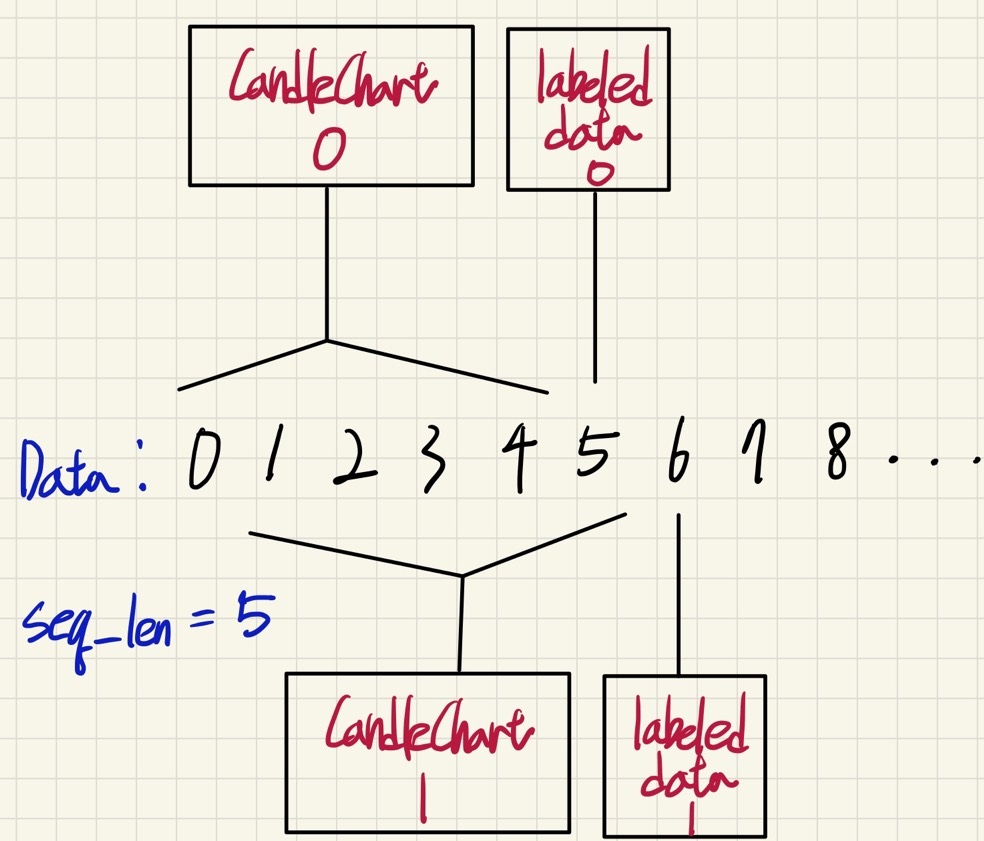 CandleChart
0
labeled
data
0
Data: 0 1 2 3 4 5 6 7 8 ...
seq_len = 5
CandleChart
1
labeled
data
1